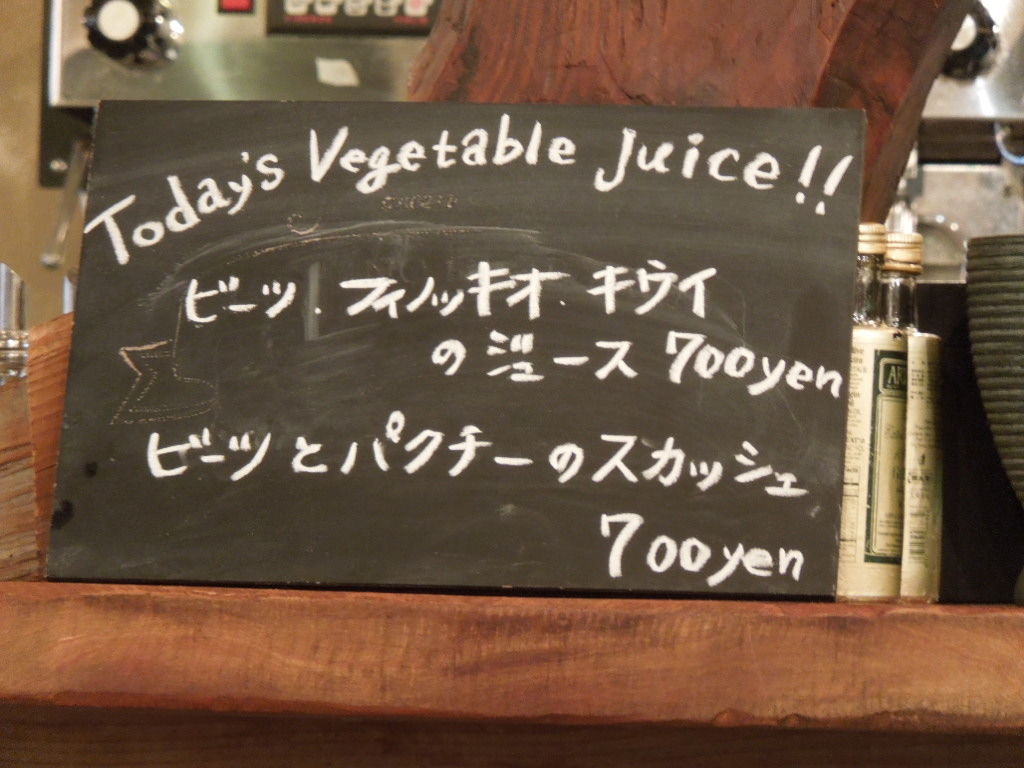 Today's Vegetable Juice!!
ビーツ.フィノッキオ.キウイ
のジュース 700yen
ビーツとパクチーのスカッシュ
700yen